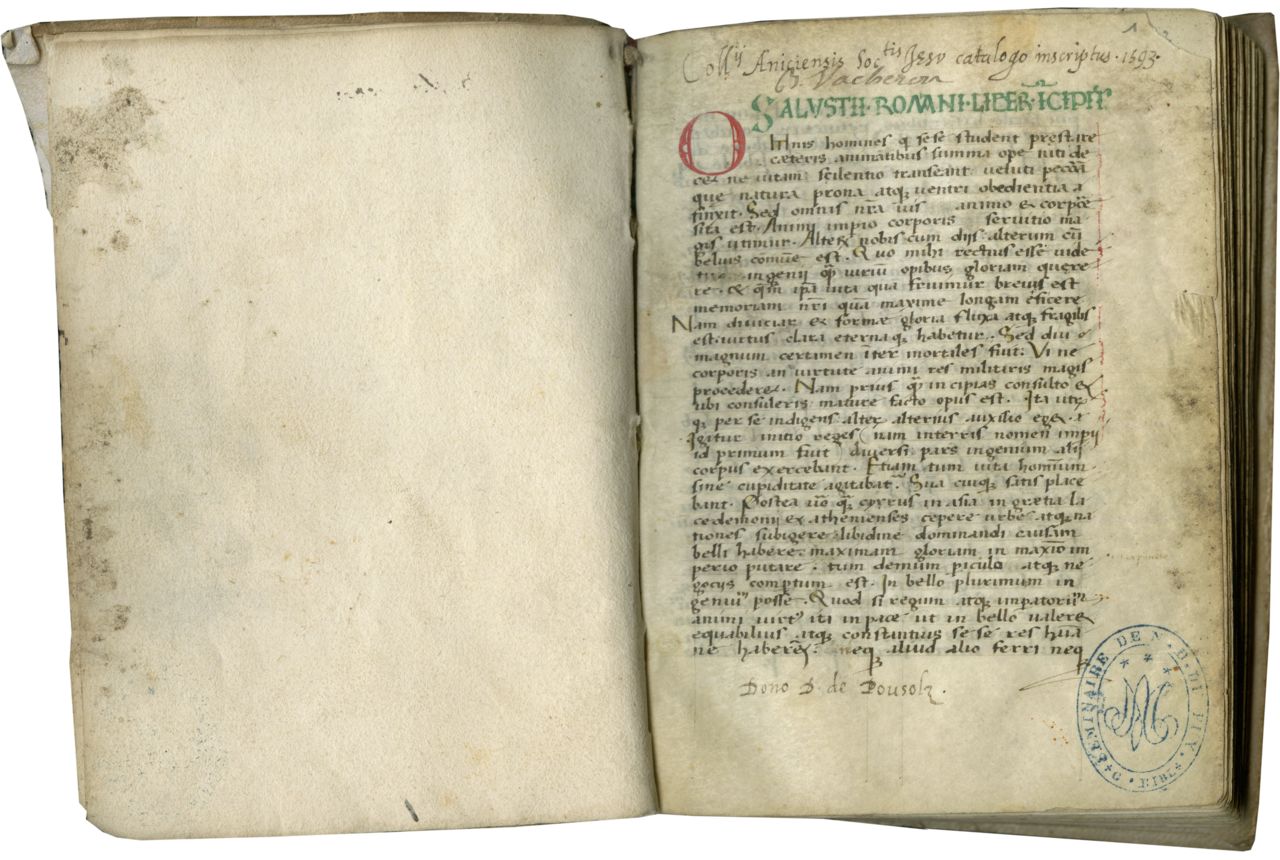 Collij Aniciensis Soctis Jesv catalogo inscriptus · 1593 ·
Vacheron
SALVSTII · ROMANI · LIBER · ICIPIT
OMnis homines q sese student prestare
cæteris animatibus summa ope niti de
cet ne vitam scilentio transeant veluti peccora
que natura prona atq ventri obedientia a
finxit · Sed omnis nra uis animo & corpore
sita est · Animi impio corporis servitio ma
gis utimur · Alterum nobis cum dijs alterum cu
beluis comune est · Quo mihi rectius esse uide
tur ingenii qm viriu opibus gloriam quere
re · & qm ipa vita qua fruimur brevis est
memoriam nri qua maxime longam eficere
Nam diviciar & formæ gloria fluxa atq fragilis
est · virtus clara eternaq habetur · Sed diu
magnum certamen iter mortales fuit · Vi ne
corporis an virtute animi res militaris magis
procederet · Nam prius qm incipias consulto &
ubi consuleris mature facto opus est · Ita utr
q per se indigens alter alterius auxilio eget
Igitur initio reges ( nam interris nomen impij
id primum fuit ) diversi pars ingenium alij
corpus exercebant · Etiam tum vita hominum
sine cupiditate agitabat · Sua cuiq satis place
bant · Postea uo qm cyrus in asia in grætia la
cedemonii & athenienses cepere urbe atq na
tiones subigere libidine dominandi causam
belli habere · maximam gloriam in maxio im
perio putare · tum demum piculo atq ne
gociis comptum est · In bello plurimum in
geniu posse · Quod si regum atq impatoru
animi virts iti in pace ut in bello valeret
equabilius atq constantius se se res huma
ne haberet · neq aliud alio ferri neq
Dono D. de Pousolz ·
SEMINAIRE DE N. D. DU PUY. BIBL